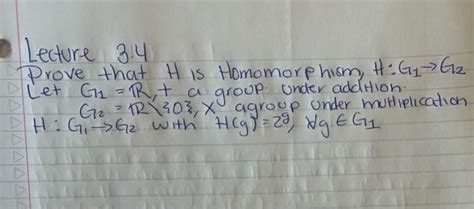 Lecture 3.4
Prove that H is Homomorphism, H: G₁→G₂
Let G₁ = ℝ, + a group under addition.
G₂ = ℝ\{0}, X a group under multiplication
H: G₁→G₂ with H(g) = 2ᵍ, ∀g ∈ G₁